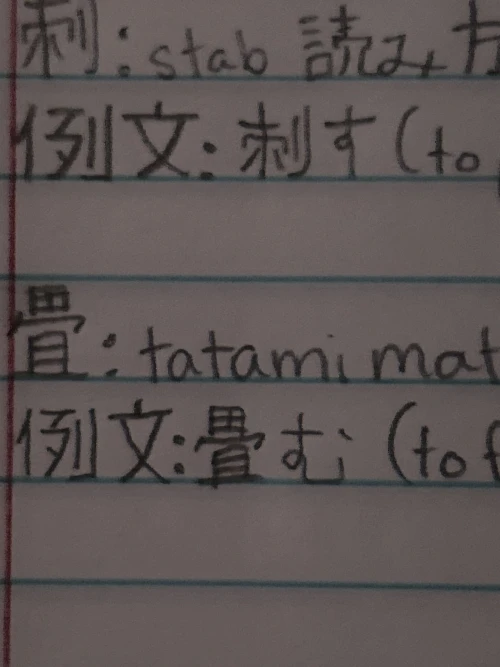 刺:stab 読み方
例文:刺す(to
畳:tatami mat
例文:畳む(to f